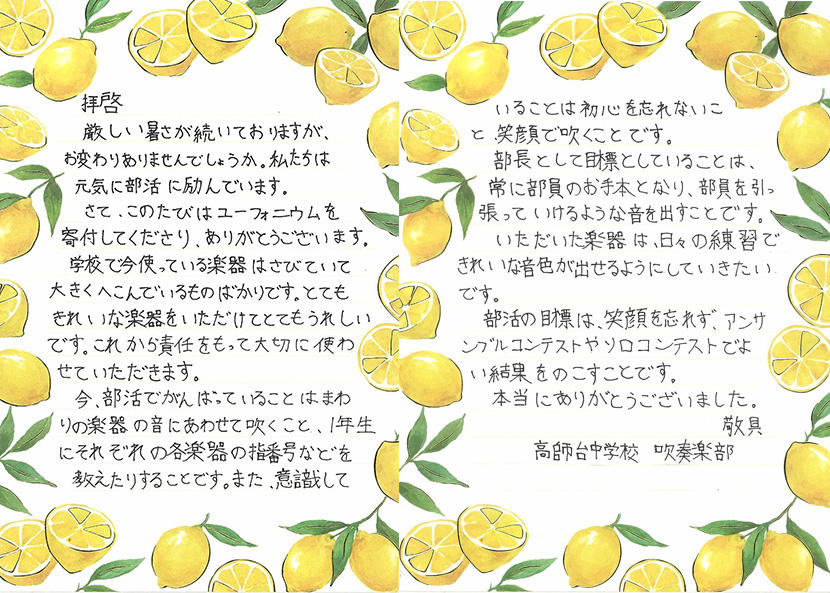 拝啓
厳しい暑さが続いておりますが、
お変わりありませんでしょうか。私たちは
元気に部活に励んでいます。
さて、このたびはユーフォニウムを
寄付してくださり、ありがとうございます。
学校で今使っている楽器はさびていて
大きくへこんでいるものばかりです。とても
きれいな楽器をいただけてとてもうれしい
です。これから責任をもって大切に使わ
せていただきます。
今、部活でがんばっていることはまわ
りの楽器の音にあわせて吹くこと、1年生
にそれぞれの各楽器の指番号などを
教えたりすることです。また、意識して
いることは初心を忘れないこ
と、笑顔で吹くことです。
部長として目標としていることは、
常に部員のお手本となり、部員を引っ
張っていけるような音を出すことです。
いただいた楽器は、日々の練習で
きれいな音色が出せるようにしていきたい
です。
部活の目標は、笑顔を忘れず、アンサ
ンブルコンテストやソロコンテストでよ
い結果をのこすことです。
本当にありがとうございました。
敬具
高師台中学校 吹奏楽部